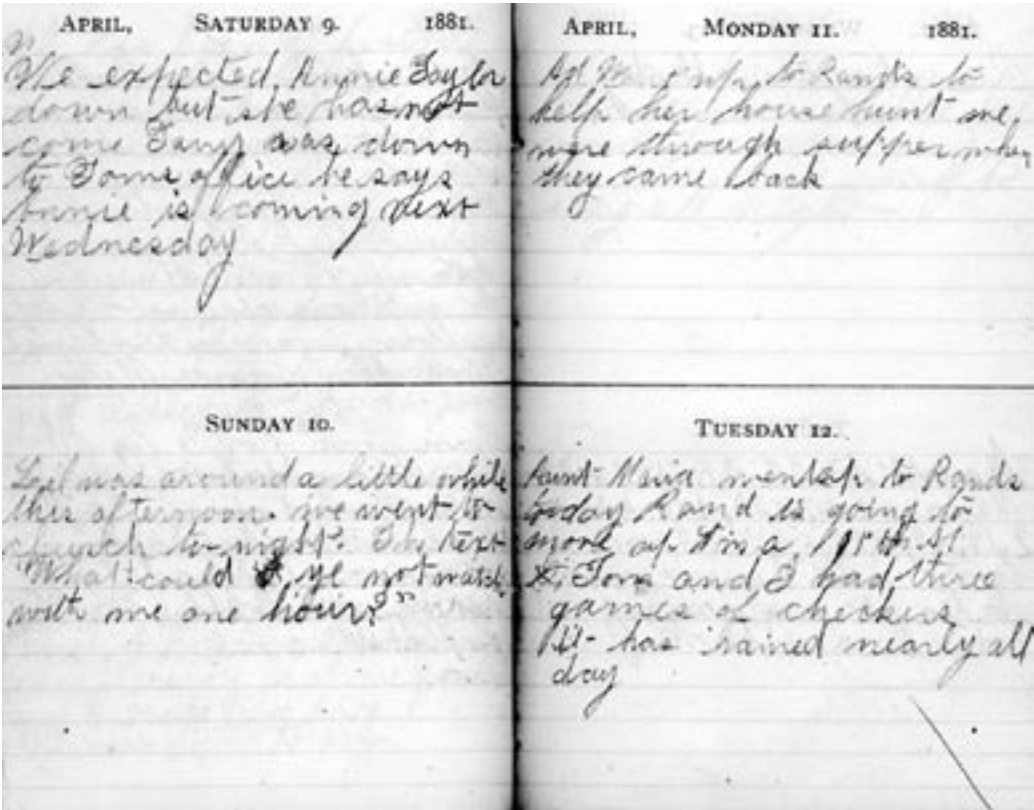 APRIL, SATURDAY 9. 1881.
We expected Annie Taylor
down but she has not
come was down
to Toms office he says
Annie is coming next
Wednesday
SUNDAY 10.
was around a little while
this afternoon. we went to
church to-night. text
"What! could ye not watch
with me one hour?"
APRIL, MONDAY 11. 1881.
up to Rands to
help her house hunt we
were through supper when
they came back
TUESDAY 12.
Aunt went up to Rands
today Rand is going to
move up
Tom and I had three
games of checkers
It has rained nearly all
day